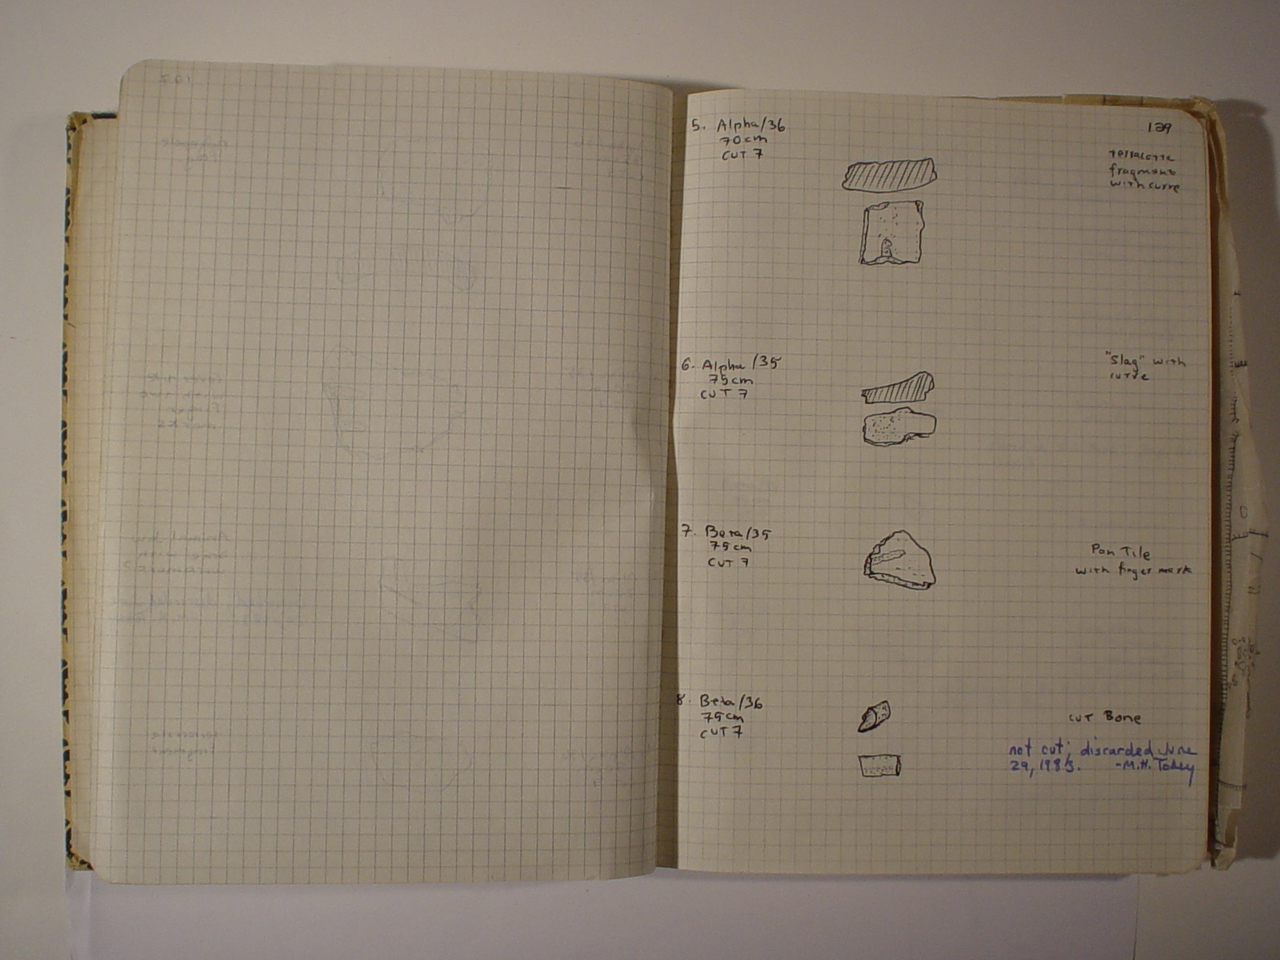 129
5. Alpha/36
70cm
CUT 7
terracotta
fragment
with curve
6. Alpha/35
75cm
CUT 7
"Slag" with
curve
7. Beta/35
75cm
CUT 7
Pan Tile
with finger mark
8. Beta/36
75cm
CUT 7
cut Bone
not cut; discarded June
29, 1983. -M.H.